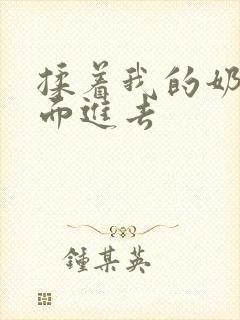 揉着我的奶
而进去
鍾某英